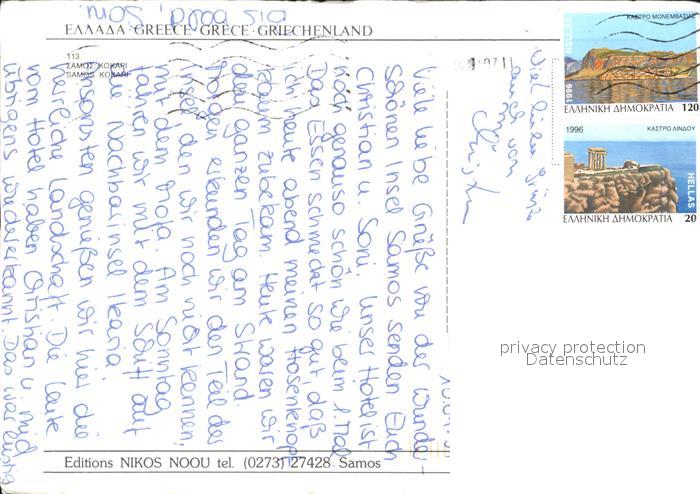 bis bald, Soni.
ΕΛΛΑΔΑ GREECE GRÈCE GRIECHENLAND
113
ΣΑΜΟΣ ΚΟΚΑΡΙ
SAMOS KOKARI
Viele liebe Grüße von der wunder-
schönen Insel Samos senden Euch
Christian u. Soni. Unser Hotel ist
noch genauso schön wie beim 1. Mal.
Das Essen schmeckt so gut, daß
ich heute abend meinen Hosenknopf
kaum zubekam. Heute waren wir
den ganzen Tag am Strand.
Morgen erkunden wir den Teil der
Insel, den wir noch nicht kennen,
mit dem Mofa. Am Sonntag
fahren wir mit dem Schiff auf
die Nachbarinsel Ikaria.
Ansonsten genießen wir hier die
herrliche Landschaft. Die Leute
vom Hotel haben Christian u. mich
übrigens wiedererkannt. Das war lustig
Viel liebe Grüße
auch von
ΚΑΣΤΡΟ ΜΟΝΕΜΒΑΣΙΑΣ
HELLAS
1996
ΕΛΛΗΝΙΚΗ ΔΗΜΟΚΡΑΤΙΑ 120
1996 ΚΑΣΤΡΟ ΛΙΝΔΟΥ
HELLAS
ΕΛΛΗΝΙΚΗ ΔΗΜΟΚΡΑΤΙΑ 20
privacy protection
Datenschutz
Editions NIKOS NOOU tel. (0273) 27428 Samos